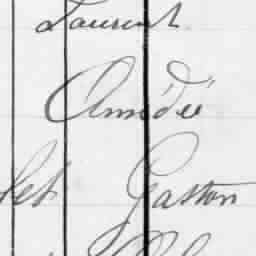 Laurent
Amédée
Gaston